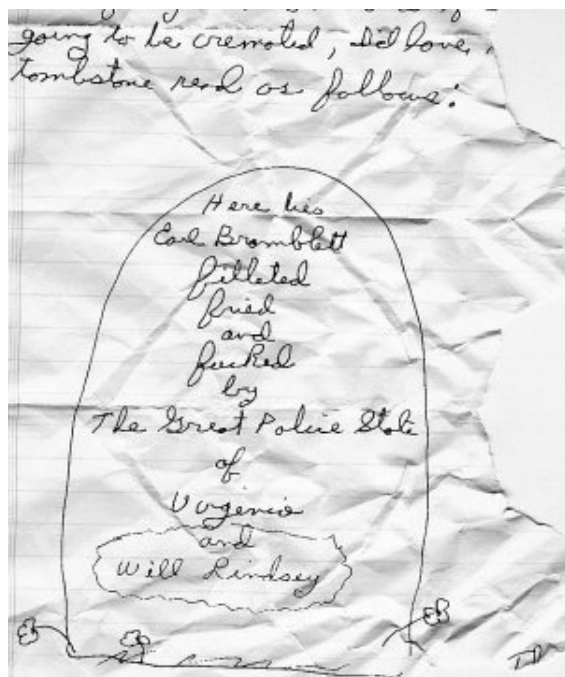 going to be cremated, I'd love
tombstone read as follows:
Here lies
Earl Bramblett
filleted
fried
and
fucked
by
The Great Police State
of
Virginia
and
Will Lindsey
EB
EB
EB